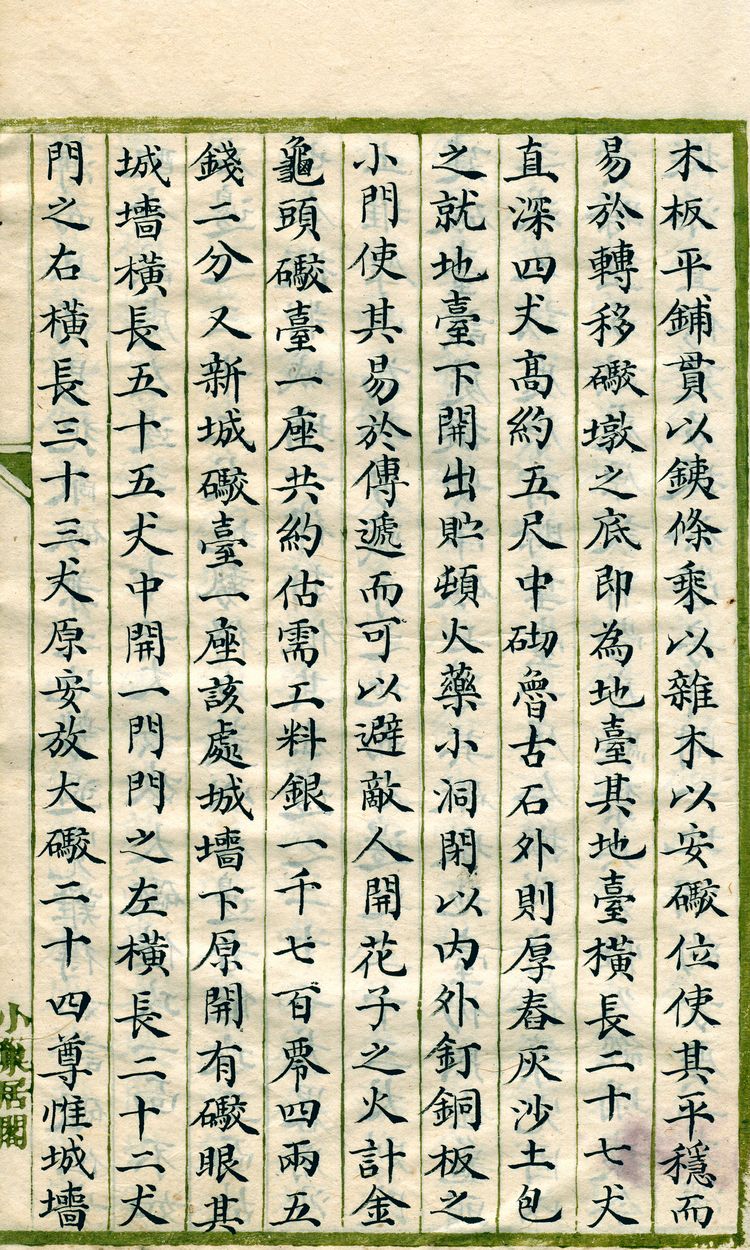 木板平鋪貫以銕條乘以雜木以安礮位使其平穩而
易於轉移礮墩之底即為地臺其地臺橫長二十七丈
直深四丈高約五尺中砌魯古石外則厚舂灰沙土包
之就地臺下開出貯頓火藥小洞閉以內外釘銅板之
小門使其易於傳遞而可以避敵人開花子之火計金
龜頭礮臺一座共約估需工料銀一千七百零四兩五
錢二分又新城礮臺一座該處城墻下原開有礮眼其
城墻橫長五十五丈中開一門門之左橫長二十二丈
門之右橫長三十三丈原安放大礮二十四尊惟城墻